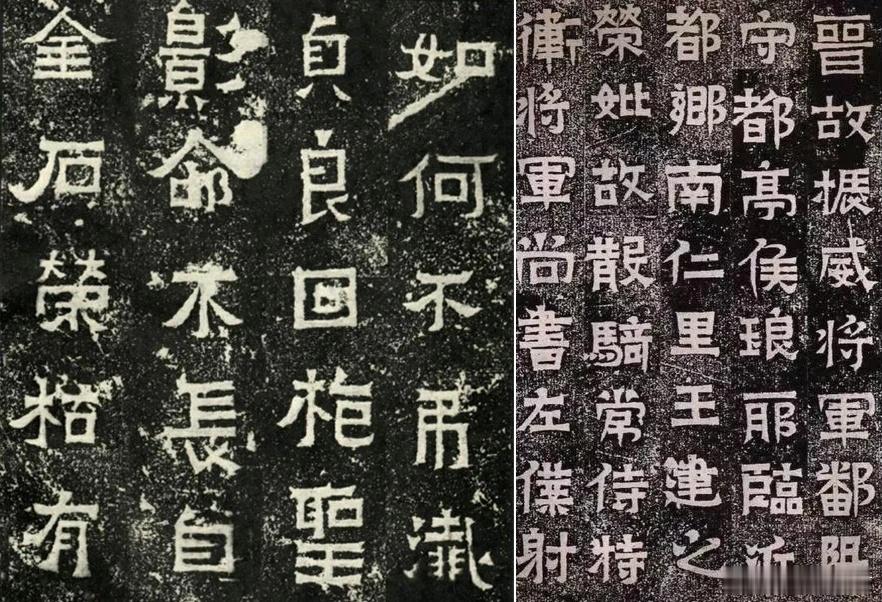 如何不弔瀸
貞良回柜聖
影命不長自
金石榮枯有
晉故振威將軍鄱陽
守都亭侯琅耶臨沂
都鄉南仁里王建之
榮妣故散騎常侍特
衛將軍尚書左僕射